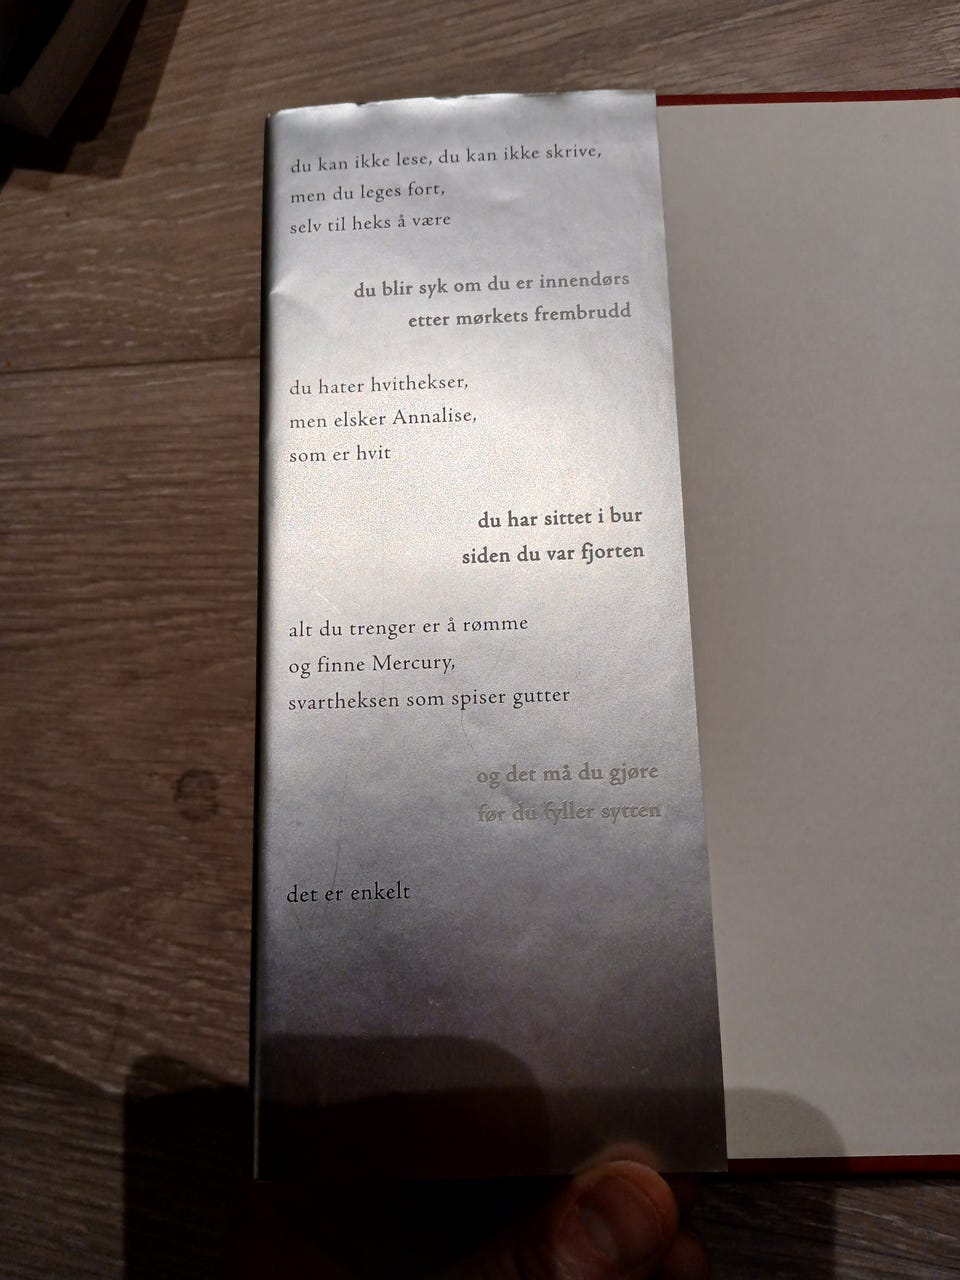 du kan ikke lese, du kan ikke skrive,
men du leges fort,
selv til heks å være
du blir syk om du er innendørs
etter mørkets frembrudd
du hater hvithekser,
men elsker Annalise,
som er hvit
du har sittet i bur
siden du var fjorten
alt du trenger er å rømme
og finne Mercury,
svartheksen som spiser gutter
og det må du gjøre
før du fyller sytten
det er enkelt